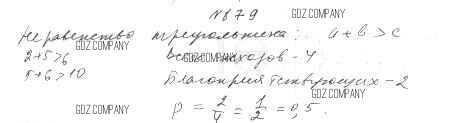 №879 GDZ.COMPANY
Неравенство треугольника: a+b>c
GDZ.COMPANY
2+5>6 Всего исходов - 4
5+6>10 GDZ.COMPANY
Благоприятствующих - 2
GDZ.COMPANY GDZ.COMPANY
p = 2/4 = 1/2 = 0,5.